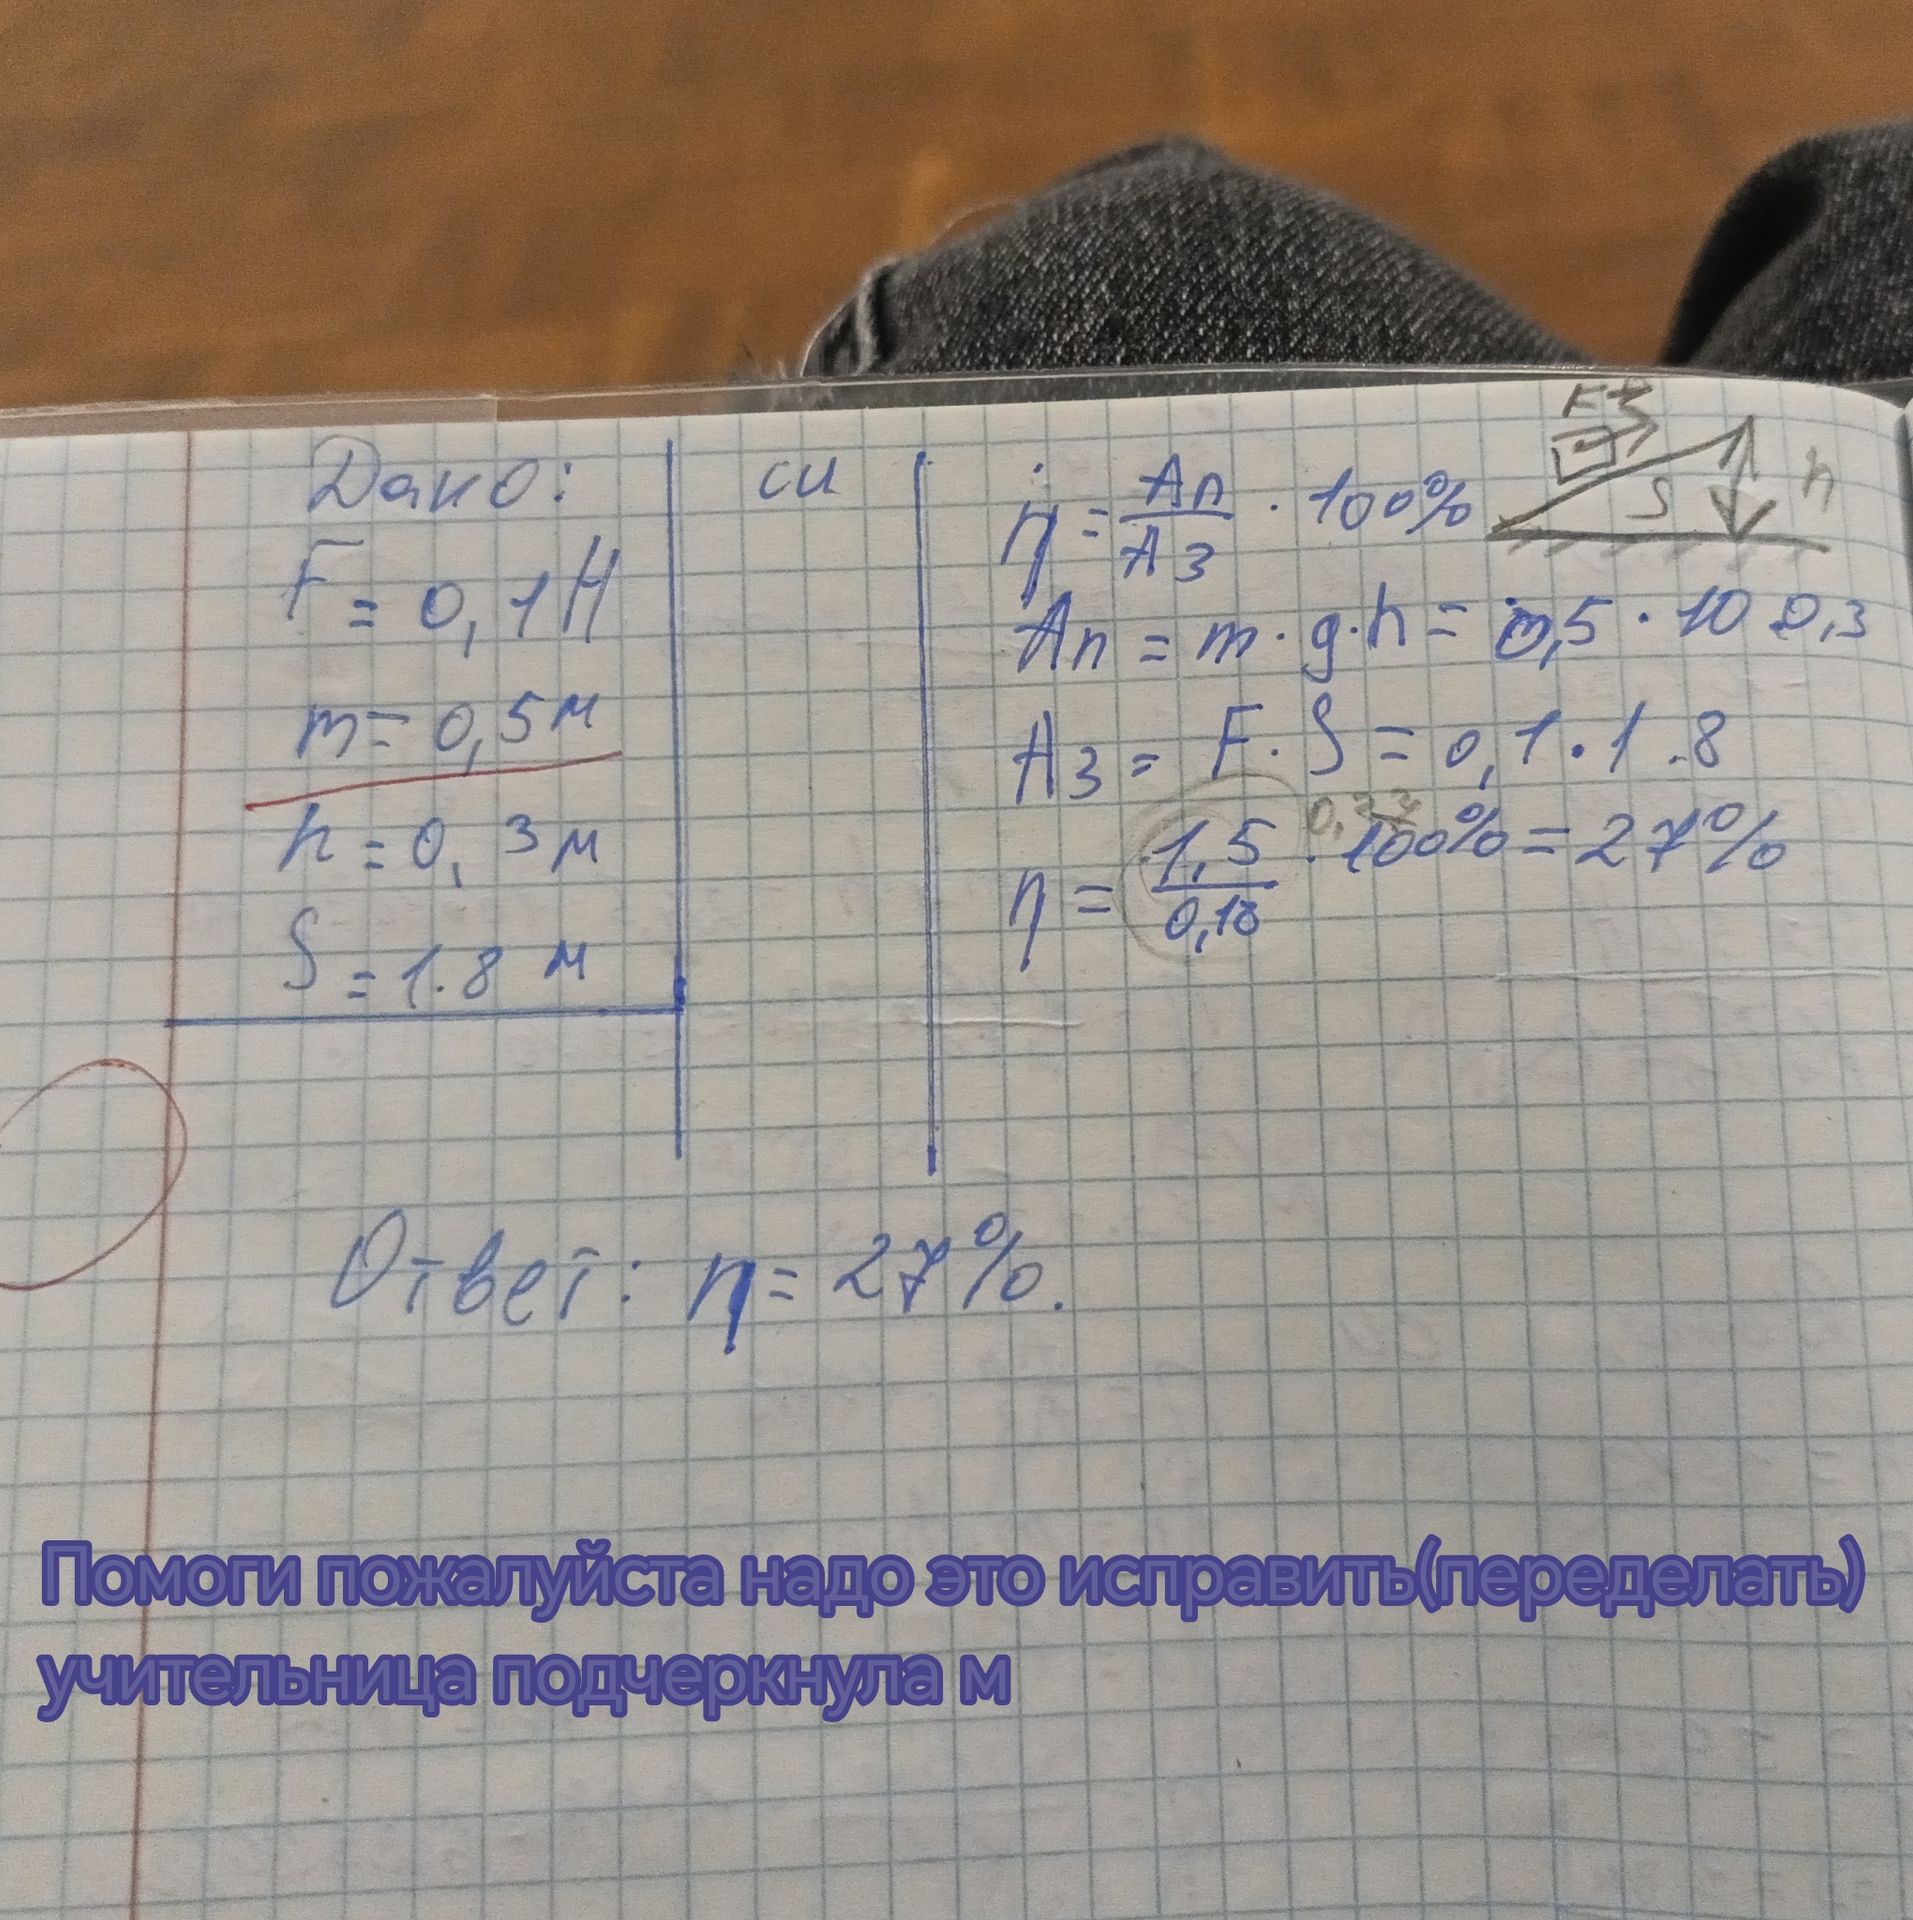 Дано:
F = 0,1 Н
m = 0,5 м
h = 0,3 м
S = 1.8 м
си
η = Aп / Aз · 100%
S h
Aп = m · g · h = 0,5 · 10 0,3
Aз = F · S = 0,1 · 1.8
η = 1,5 / 0,18 · 100% = 27%
Ответ: η = 27%.
Помоги пожалуйста надо это исправить(переделать)
учительница подчеркнула м